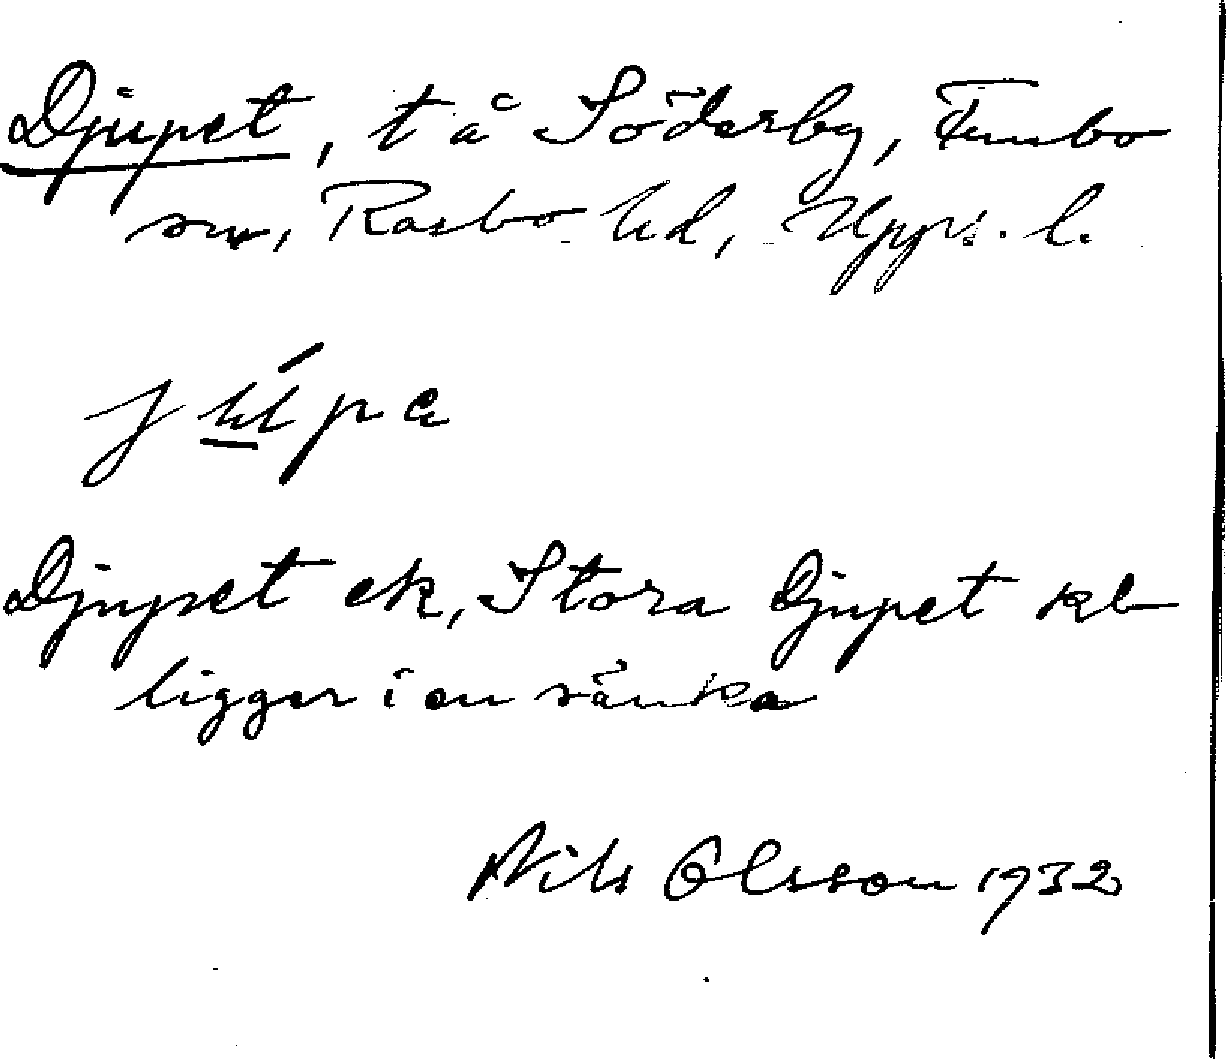 Djupet, t å Söderby, Funbo
sn, Rasbo hd, Upps. l.
Djupet ek, Stora Djupet kb
ligger i en sänka
Nils Olsson 1932